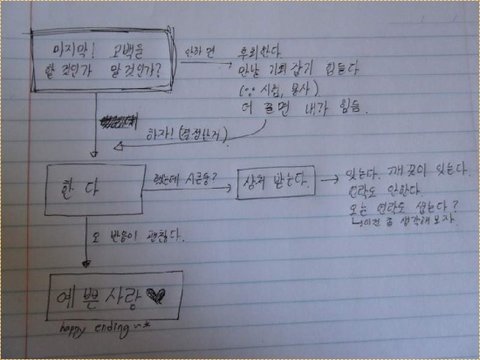 마지막! 고백을
할 것인가 말 것인가?
안하면
후회한다
만날 기회 잡기 힘들다
(∵ 시험, 봉사)
더 끌면 내가 힘듦.
하자! (결정한거)
한 다
했는데 시큰둥?
상처 받는다.
있는다. 깨끗이 있는다.
연락도 안한다.
오는 연락도 씹는다?
이건 좀 생각해보자
오 반응이 괜찮다.
예쁜사랑 ♥
happy ending~*